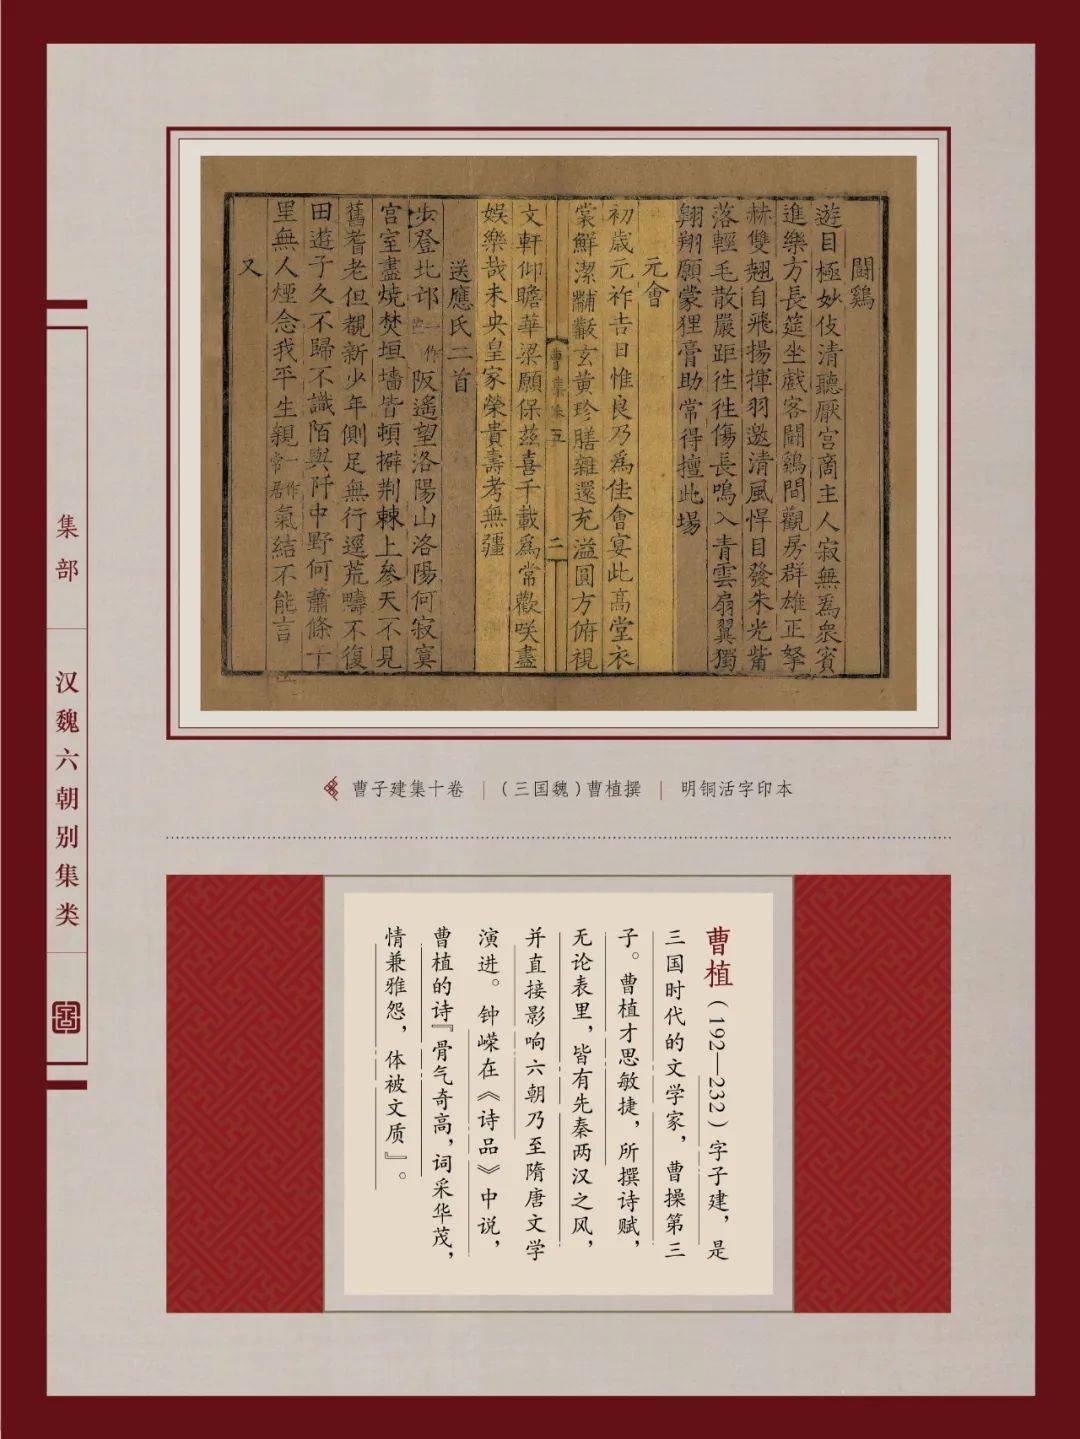 鬪鷄
遊目極妙伎清聽厭宫商主人寂無爲衆賓
進樂方長筵坐戲客鬪鷄間觀房群雄正拏
赫雙翹自飛揚揮羽邀清風悍目發朱光觜
落輕毛散嚴距往往傷長鳴入青雲扇翼獨
翱翔願蒙狸膏助常得擅此場
元會
初歳元祚吉日惟良乃爲佳會宴此髙堂衣
裳鮮潔黼黻玄黄珍膳雜還充溢圓方俯視
曹集卷五
二
文軒仰瞻華梁願保兹喜千載爲常歡咲盡
娱樂哉未央皇家榮貴壽考無疆
送應氏二首
步登北邙一作芒阪遥望洛陽山洛陽何寂寞
宫室盡燒焚垣墻皆頓擗荆棘上參天不見
舊耆老但覩新少年側足無行逕荒疇不復
田遊子久不歸不識陌與阡中野何蕭條千
里無人煙念我平生親一作常居氣結不能言
又
集部
汉魏六朝别集类
曹子建集十卷 | （三国魏）曹植撰 | 明铜活字印本
曹植（192—232）字子建，是
三国时代的文学家，曹操第三
子。曹植才思敏捷，所撰诗赋，
无论表里，皆有先秦两汉之风，
并直接影响六朝乃至隋唐文学
演进。钟嵘在《诗品》中说，
曹植的诗『骨气奇高，词采华茂，
情兼雅怨，体被文质』。